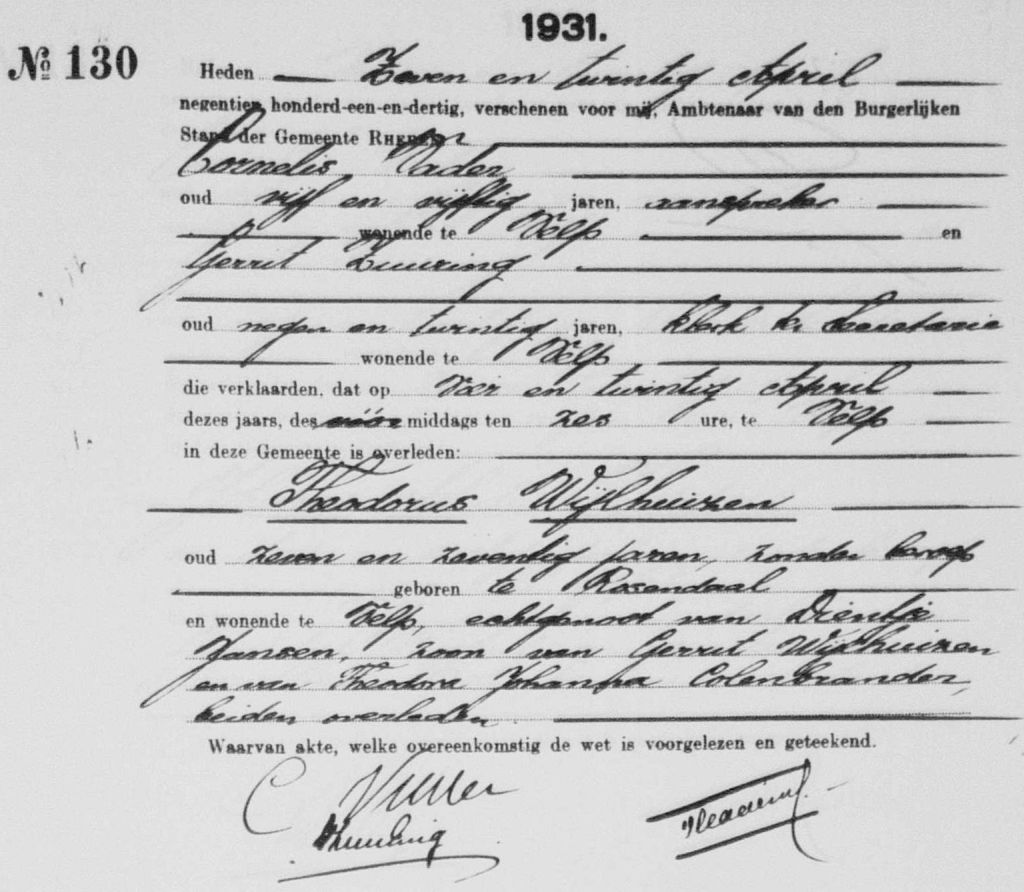 1931.
№ 130
Heden Zeven en twintig April
negentien honderd-een-en-dertig, verschenen voor mij, Ambtenaar van den Burgerlijken
Stand der Gemeente RHEDEN
Cornelis Vader
oud vijf en vijftig jaren, aanspreker
wonende te Velp en
Gerrit Zuuring
oud negen en twintig jaren, klerk ter secretarie
wonende te Velp
die verklaarden, dat op Vier en twintig April
dezes jaars, des middags ten zes ure, te Velp
in deze Gemeente is overleden:
Theodorus Wijlhuizen
oud zeven en zeventig jaren, zonder beroep
geboren te Rosendaal
en wonende te Velp, echtgenoot van Dientje
Jansen, zoon van Gerrit Wijlhuizen
en van Theodora Johanna Colenbrander,
beiden overleden.
Waarvan akte, welke overeenkomstig de wet is voorgelezen en geteekend.
C Vader
Zuuring